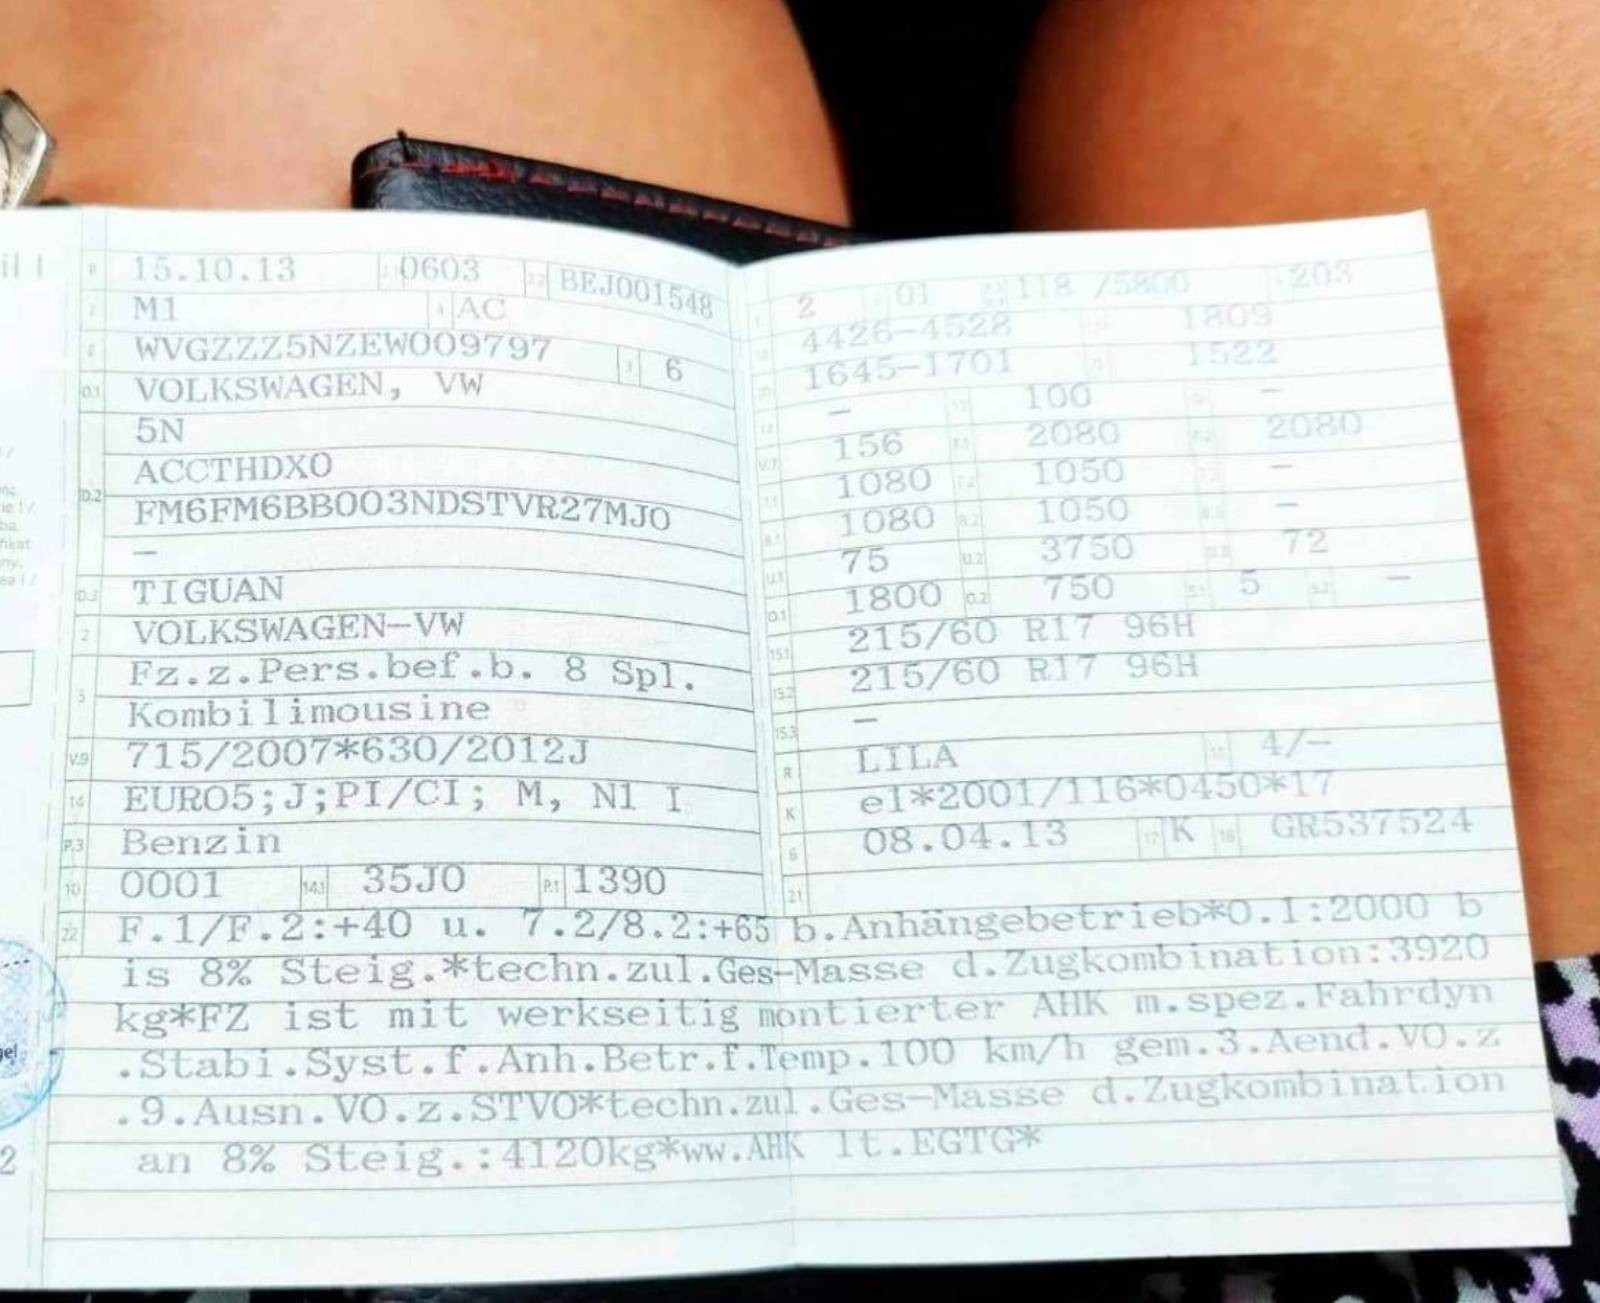 B 15.10.13 2.1 0603 2.2 BEJ001548
J M1 4 AC
E WVGZZZ5NZEW009797 3 6
D.1 VOLKSWAGEN, VW
D.2 5N
ACCTHDX0
FM6FM6BB003NDSTVR27MJ0
—
D.3 TIGUAN
2 VOLKSWAGEN-VW
5 Fz.z.Pers.bef.b. 8 Spl.
Kombilimousine
V.9 715/2007*630/2012J
14 EURO5;J;PI/CI; M, N1 I
P.3 Benzin
10 0001 14.1 35J0 P.1 1390
2 01 118 /5800 203
4426-4528 1809
1645-1701 1522
— 100 —
V.7 156 F.1 2080 F.2 2080
7.1 1080 7.2 1050 —
8.1 1080 8.2 1050 —
U.1 75 U.2 3750 72
O.1 1800 O.2 750 S.1 5 S.2 —
15.1 215/60 R17 96H
15.2 215/60 R17 96H
15.3 —
R LILA 11 4/—
K e1*2001/116*0450*17
6 08.04.13 17 K 16 GR537524
21
22 F.1/F.2:+40 u. 7.2/8.2:+65 b.Anhängebetrieb*O.1:2000 b
is 8% Steig.*techn.zul.Ges-Masse d.Zugkombination:3920
kg*FZ ist mit werkseitig montierter AHK m.spez.Fahrdyn
.Stabi.Syst.f.Anh.Betr.f.Temp.100 km/h gem.3.Aend.VO.z
.9.Ausn.VO.z.STVO*techn.zul.Ges-Masse d.Zugkombination
an 8% Steig.:4120kg*ww.AHK lt.EGTG*